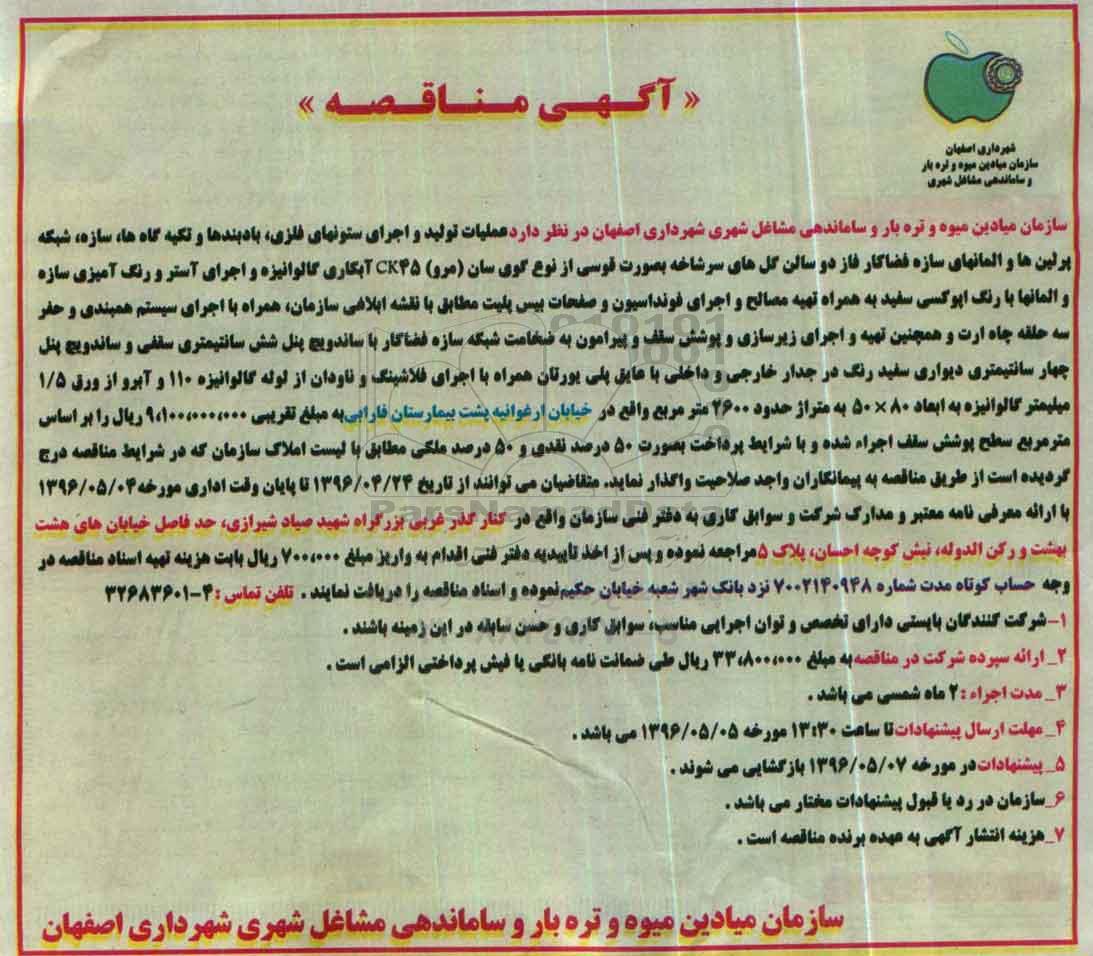 « آگهی مناقصه »
شهرداری اصفهان
سازمان میادین میوه و تره بار
و ساماندهی مشاغل شهری
سازمان میادین میوه و تره بار و ساماندهی مشاغل شهری شهرداری اصفهان در نظر دارد عملیات تولید و اجرای ستونهای فلزی، بادبندها و تکیه گاه ها، سازه، شبکه
پرلین ها و المانهای سازه فضاکار فاز دو سالن گل های سرشاخه بصورت قوسی از نوع گوی سان (مرو) CK۴۵ آبکاری گالوانیزه و اجرای آستر و رنگ آمیزی سازه
و المانها با رنگ اپوکسی سفید به همراه تهیه مصالح و اجرای فونداسیون و صفحات بیس پلیت مطابق با نقشه ابلاغی سازمان، همراه با اجرای سیستم همبندی و حفر
سه حلقه چاه ارت و همچنین تهیه و اجرای زیرسازی و پوشش سقف و پیرامون به ضخامت شبکه سازه فضاکار با ساندویچ پنل شش سانتیمتری سقفی و ساندویچ پنل
چهار سانتیمتری دیواری سفید رنگ در جدار خارجی و داخلی با عایق پلی یورتان همراه با اجرای فلاشینگ و ناودان از لوله گالوانیزه ۱۱۰ و آبرو از ورق ۱/۵
میلیمتر گالوانیزه به ابعاد ۸۰ × ۵۰ به متراژ حدود ۲۶۰۰ متر مربع واقع در خیابان ارغوانیه پشت بیمارستان فارابی به مبلغ تقریبی ۹،۱۰۰،۰۰۰،۰۰۰ ریال را بر اساس
مترمربع سطح پوشش سقف اجراء شده و با شرایط پرداخت بصورت ۵۰ درصد نقدی و ۵۰ درصد ملکی مطابق با لیست املاک سازمان که در شرایط مناقصه درج
گردیده است از طریق مناقصه به پیمانکاران واجد صلاحیت واگذار نماید. متقاضیان می توانند از تاریخ ۱۳۹۶/۰۴/۲۴ تا پایان وقت اداری مورخه ۱۳۹۶/۰۵/۰۴
با ارائه معرفی نامه معتبر و مدارک شرکت و سوابق کاری به دفتر فنی سازمان واقع در کنار گذر غربی بزرگراه شهید صیاد شیرازی، حد فاصل خیابان های هشت
بهشت و رکن الدوله، نبش کوچه احسان، پلاک ۵ مراجعه نموده و پس از اخذ تأییدیه دفتر فنی اقدام به واریز مبلغ ۷۰۰،۰۰۰ ریال بابت هزینه تهیه اسناد مناقصه در
وجه حساب کوتاه مدت شماره ۷۰۰۲۱۴۰۹۴۸ نزد بانک شهر شعبه خیابان حکیم نموده و اسناد مناقصه را دریافت نمایند . تلفن تماس : ۴-۳۲۶۸۳۶۰۱
۱-شرکت کنندگان بایستی دارای تخصص و توان اجرایی مناسب، سوابق کاری و حسن سابقه در این زمینه باشند .
۲_ ارائه سپرده شرکت در مناقصه به مبلغ ۳۳،۸۰۰،۰۰۰ ریال طی ضمانت نامه بانکی یا فیش پرداختی الزامی است .
۳_ مدت اجراء : ۲ ماه شمسی می باشد .
۴_ مهلت ارسال پیشنهادات تا ساعت ۱۳:۳۰ مورخه ۱۳۹۶/۰۵/۰۵ می باشد .
۵_ پیشنهادات در مورخه ۱۳۹۶/۰۵/۰۷ بازگشایی می شوند .
۶_سازمان در رد یا قبول پیشنهادات مختار می باشد .
۷_هزینه انتشار آگهی به عهده برنده مناقصه است .
سازمان میادین میوه و تره بار و ساماندهی مشاغل شهری شهرداری اصفهان
ParsNamadData